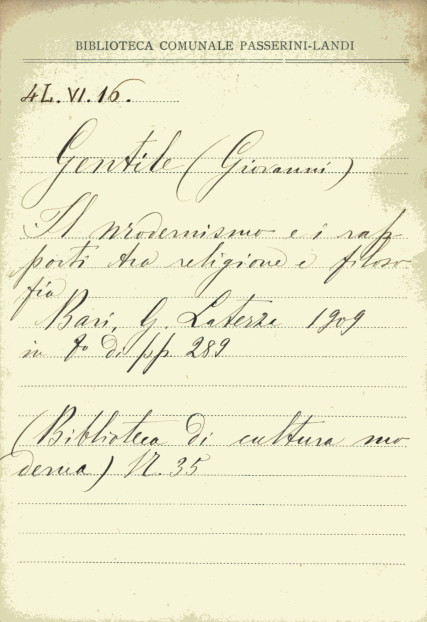 BIBLIOTECA COMUNALE PASSERINI-LANDI
4L. VI. 16.
Gentile (Giovanni)
Il modernismo e i rap
porti tra religione e filoso
fia
Bari, G. Laterza 1909
in 8° di pp 289
(Biblioteca di cultura mo
derna) N. 35